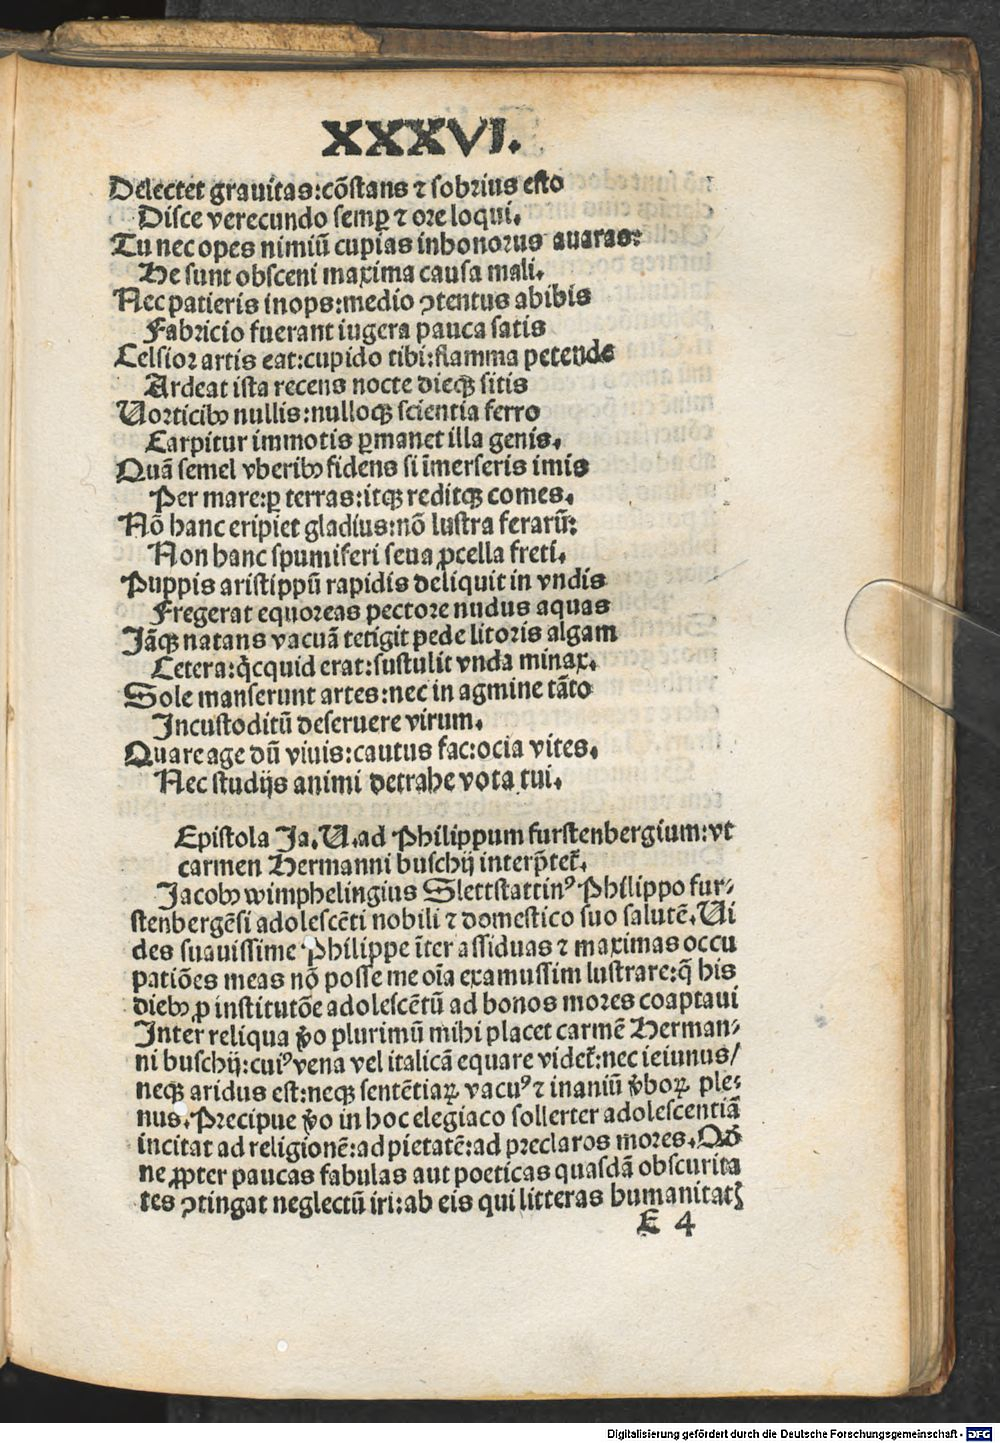 XXXVI.
Delectet grauitas:cõstans ⁊ sobrius esto
Disce verecundo semꝑ ⁊ ore loqui.
Tu nec opes nimiũ cupias inhonorus auaras:
He sunt obsceni maxima causa mali.
Nec patieris inops:medio ↄtentus abibis
Fabricio fuerant iugera pauca satis
Celsior artis eat:cupido tibi:flamma petende
Ardeat ista recens nocte dieqꝫ sitis
Uorticibꝰ nullis:nulloqꝫ scientia ferro
Carpitur immotis ꝑmanet illa genis.
Quã semel vberibꝰ fidens si ĩmerseris imis
Per mare:ꝑ terras:itqꝫ reditqꝫ comes.
Nõ hanc eripiet gladius:nõ lustra ferarũ:
Non hanc spumiferi seua ꝓcella freti.
Puppis aristippũ rapidis deliquit in vndis
Fregerat equoreas pectore nudus aquas
Jãqꝫ natans vacuã tetigit pede litoris algam
Cetera:q̇cquid erat:sustulit vnda minax.
Sole manserunt artes:nec in agmine tãto
Incustoditũ deseruere virum.
Quare age dũ viuis:cautus fac:ocia vites.
Nec studijs animi detrahe vota tui.
Epistola Ja.U.ad Philippum furstenbergium:vt
carmen Hermanni buschij interp̃tet̃.
Jacobꝰ wimphelingius Slettstattinꝰ Philippo fur-
stenbergẽsi adolescẽti nobili ⁊ domestico suo salutẽ.Ui
des suauissime Philippe ĩter assiduas ⁊ maximas occu
patiões meas nõ posse me oĩa examussim lustrare:q̃ his
diebꝰ ꝓ institutõe adolescẽtũ ad bonos mores coaptaui
Inter reliqua ṽo plurimũ mihi placet carmẽ Herman-
ni buschij:cuiꝰ vena vel italicã equare videt̃:nec ieiunus/
neqꝫ aridus est:neqꝫ sentẽtiaꝝ vacuꝰ ⁊ inaniũ ṽboꝝ ple-
nus.Precipue ṽo in hoc elegiaco sollerter adolescentiã
incitat ad religionẽ:ad pietatẽ:ad preclaros mores.Qđ
ne ꝓpter paucas fabulas aut poeticas quasdã obscurita
tes ↄtingat neglectũ iri:ab eis qui litteras humanitatꝭ
E 4
Digitalisierung gefördert durch die Deutsche Forschungsgemeinschaft - DFG